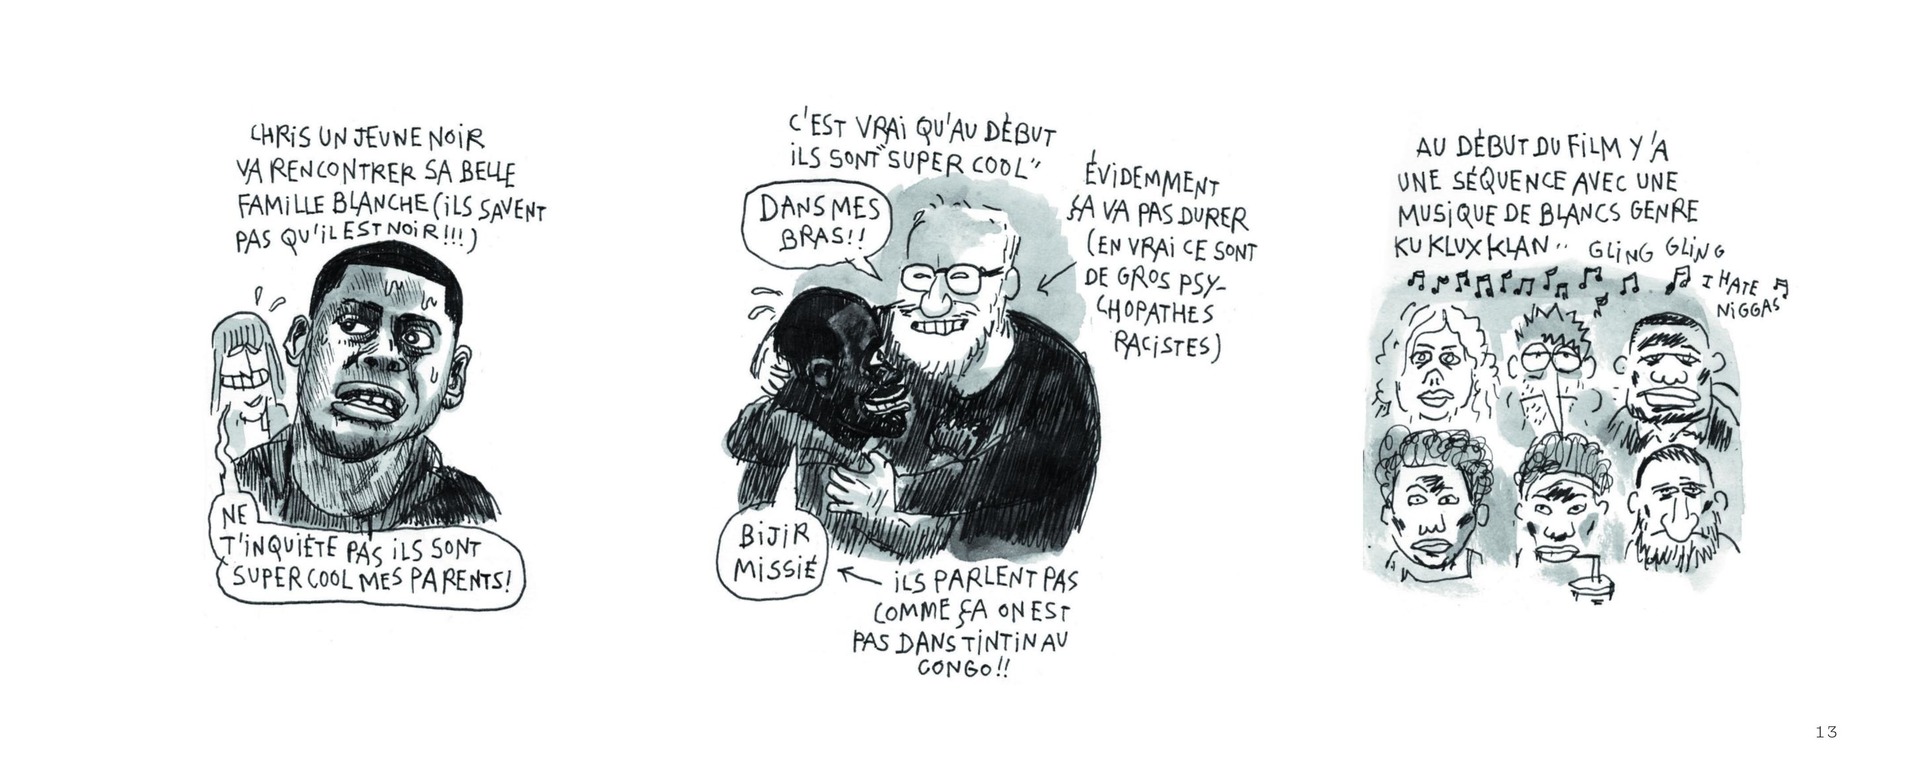 CHRIS UN JEUNE NOIR
VA RENCONTRER SA BELLE
FAMILLE BLANCHE (ILS SAVENT
PAS QU'IL EST NOIR!!!)
NE
T'INQUIÈTE PAS ILS SONT
SUPER COOL MES PARENTS!
C'EST VRAI QU'AU DÉBUT
ILS SONT "SUPER COOL"
DANS MES
BRAS!!
ÉVIDEMMENT
ÇA VA PAS DURER
(EN VRAI CE SONT
DE GROS PSY-
CHOPATHES
RACISTES)
BIJIR
MISSIÉ
ILS PARLENT PAS
COMME ÇA ON EST
PAS DANS TINTIN AU
CONGO!!
AU DÉBUT DU FILM Y'A
UNE SÉQUENCE AVEC UNE
MUSIQUE DE BLANCS GENRE
KU KLUX KLAN..
GLING GLING
I HATE
NIGGAS
13